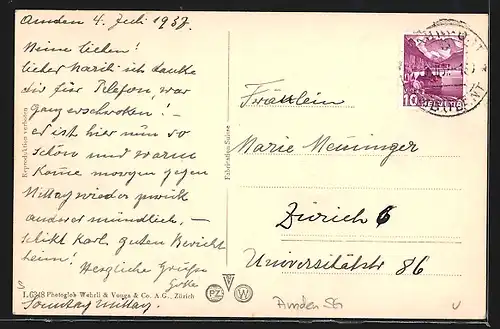 Amden 4. Juli 1937.
Meine lieben!
lieber Karli ich danke
dir für Telefon, war
ganz erschroken! –
es ist hier nun so
schön und warm
Kome morgen gegen
Mittag wieder zurück
anderes mündlich, –
schikt Karl guten Bericht
heim! Herzliche Grüsse
Sonntag Mittag.
Reproduktion verboten
Fabrication Suisse
L 6348 Photoglob Wehrli & Vouga & Co. A. G., Zürich
PZ W
10 HELVETIA
Fräulein
Marie Meininger
Zürich 6
Universitätstr 86
Amden SG